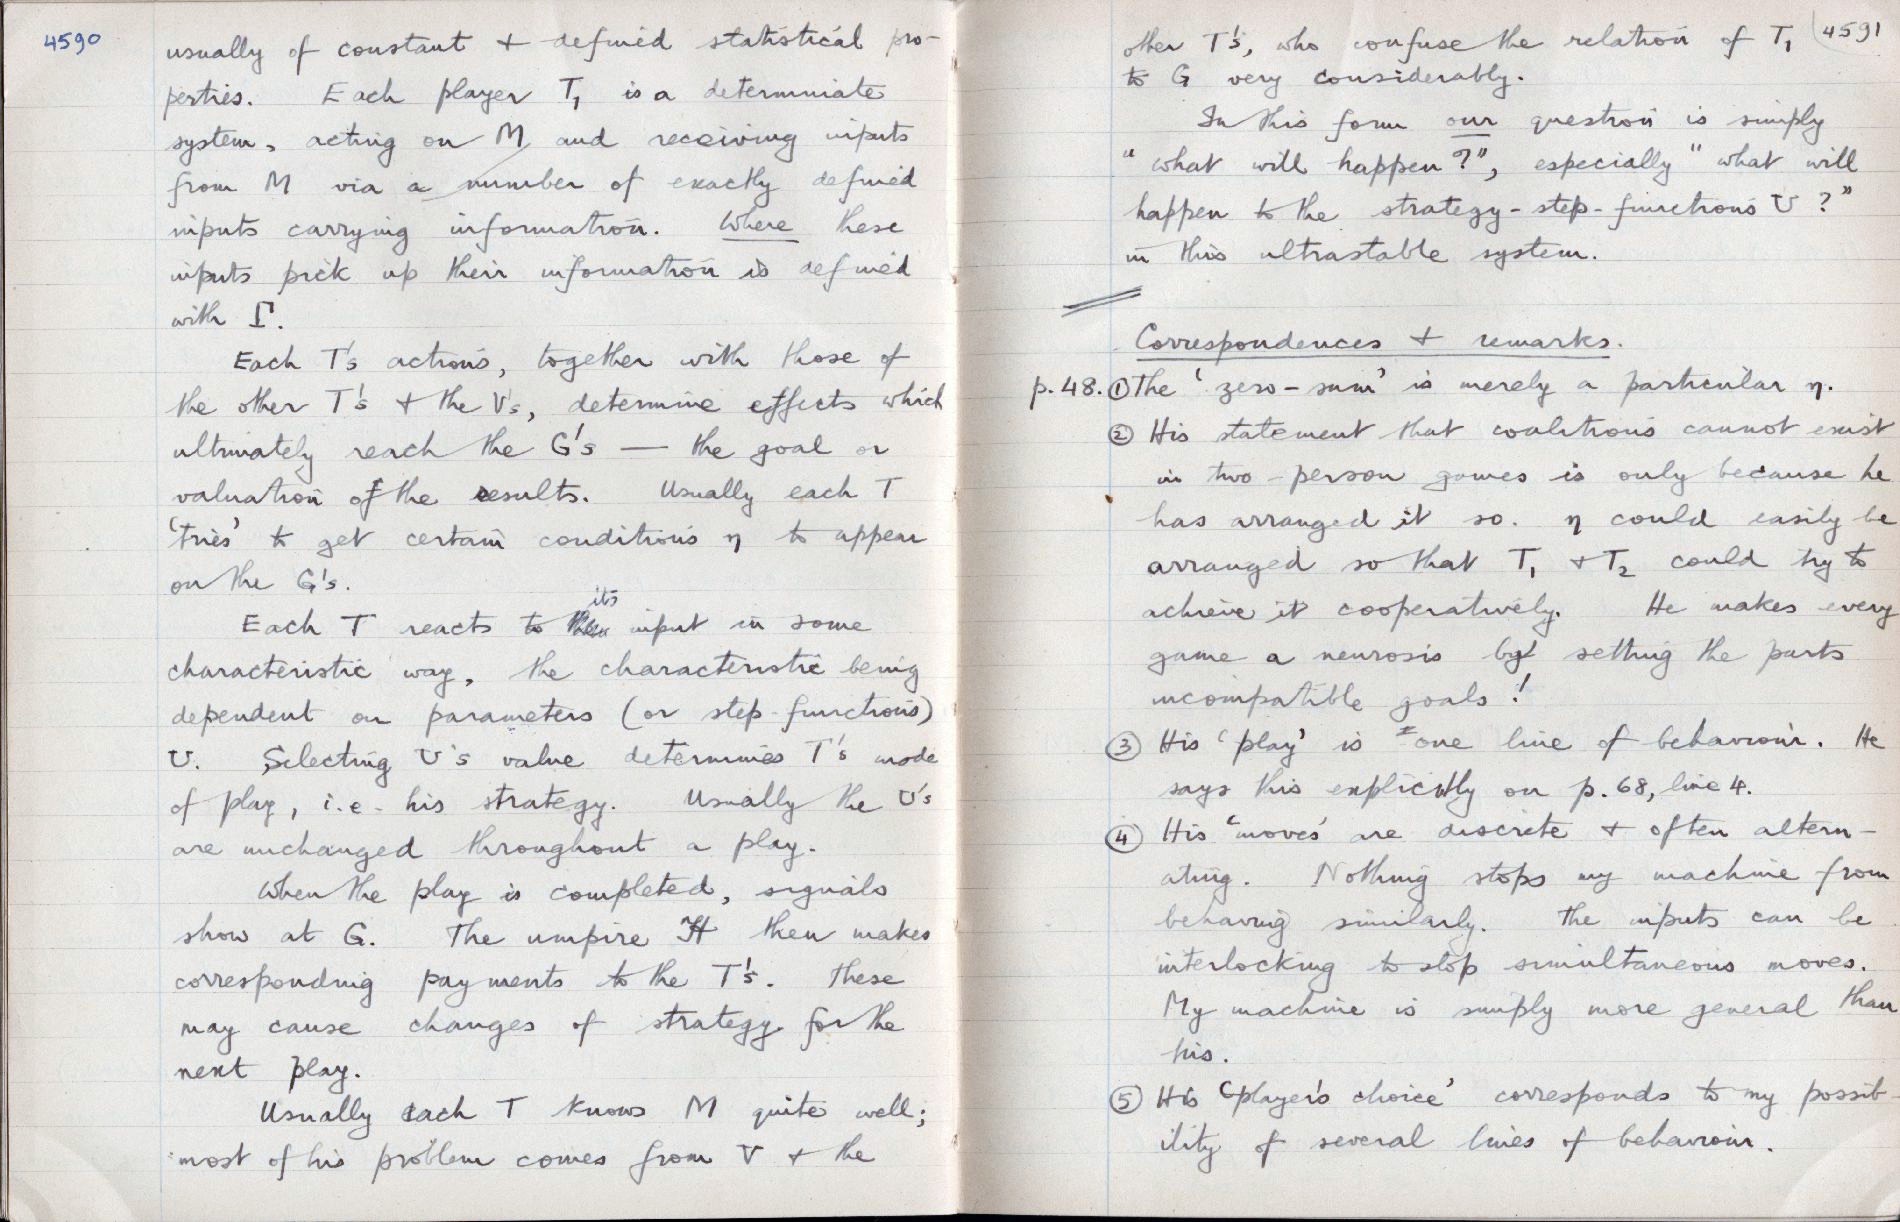 4590
usually of constant + defined statistical pro-
perties. Each player T₁ is a determinate
system, acting on M and receiving inputs
from M via a number of exactly defined
inputs carrying information. Where these
inputs pick up their information is defined
with Γ.
Each T's actions, together with those of
the other T's + the V's, determine effects which
ultimately reach the G's — the goal or
valuation of the results. Usually each T
'tries' to get certain conditions η to appear
on the G's.
Each T reacts to its input in some
characteristic way, the characteristic being
dependent on parameters (or step-functions)
U. Selecting U's value determines T's mode
of play, i.e. his strategy. Usually the U's
are unchanged throughout a play.
When the play is completed, signals
show at G. The umpire H then makes
corresponding payments to the T's. These
may cause changes of strategy for the
next play.
Usually each T knows M quite well;
most of his problem comes from V + the
4591
other T's, who confuse the relation of T₁
to G very considerably.
In this form our question is simply
"what will happen?", especially "what will
happen to the strategy-step-functions U?"
in this ultrastable system.
Correspondences + remarks.
p.48. ① The 'zero-sum' is merely a particular η.
② His statement that coalitions cannot exist
in two-person games is only because he
has arranged it so. η could easily be
arranged so that T₁ + T₂ could try to
achieve it cooperatively. He makes every
game a neurosis by setting the parts
incompatible goals!
③ His 'play' is = one line of behaviour. He
says this explicitly on p.68, line 4.
④ His 'moves' are discrete + often altern-
ating. Nothing stops my machine from
behaving similarly. The inputs can be
interlocking to stop simultaneous moves.
My machine is simply more general than
his.
⑤ His 'player's choice' corresponds to my possib-
ility of several lines of behaviour.